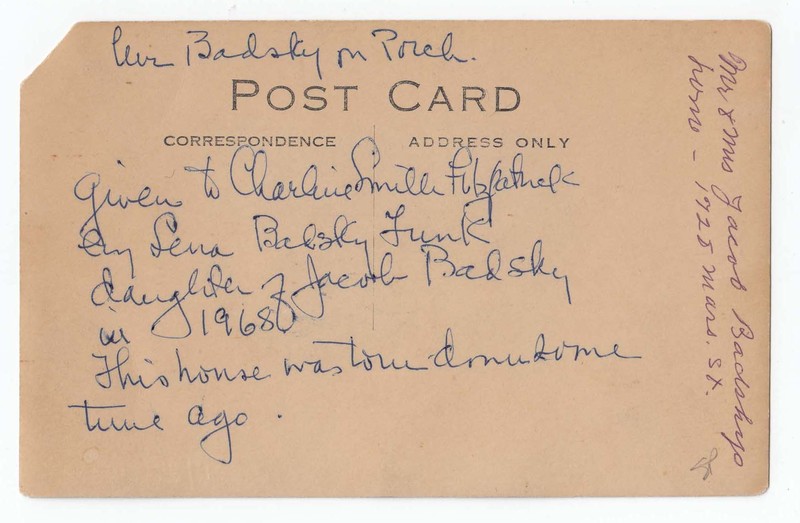 Badsky on Porch.
POST CARD
CORRESPONDENCE
ADDRESS ONLY
Given to Charline Smith Fitzpatrick
by Lena Badsky Funk
daughter of Jacob Badsky
in 1968
This house was torn down some
time ago.
Mr & Mrs Jacob Badskys
home - 1925 Mars. St.